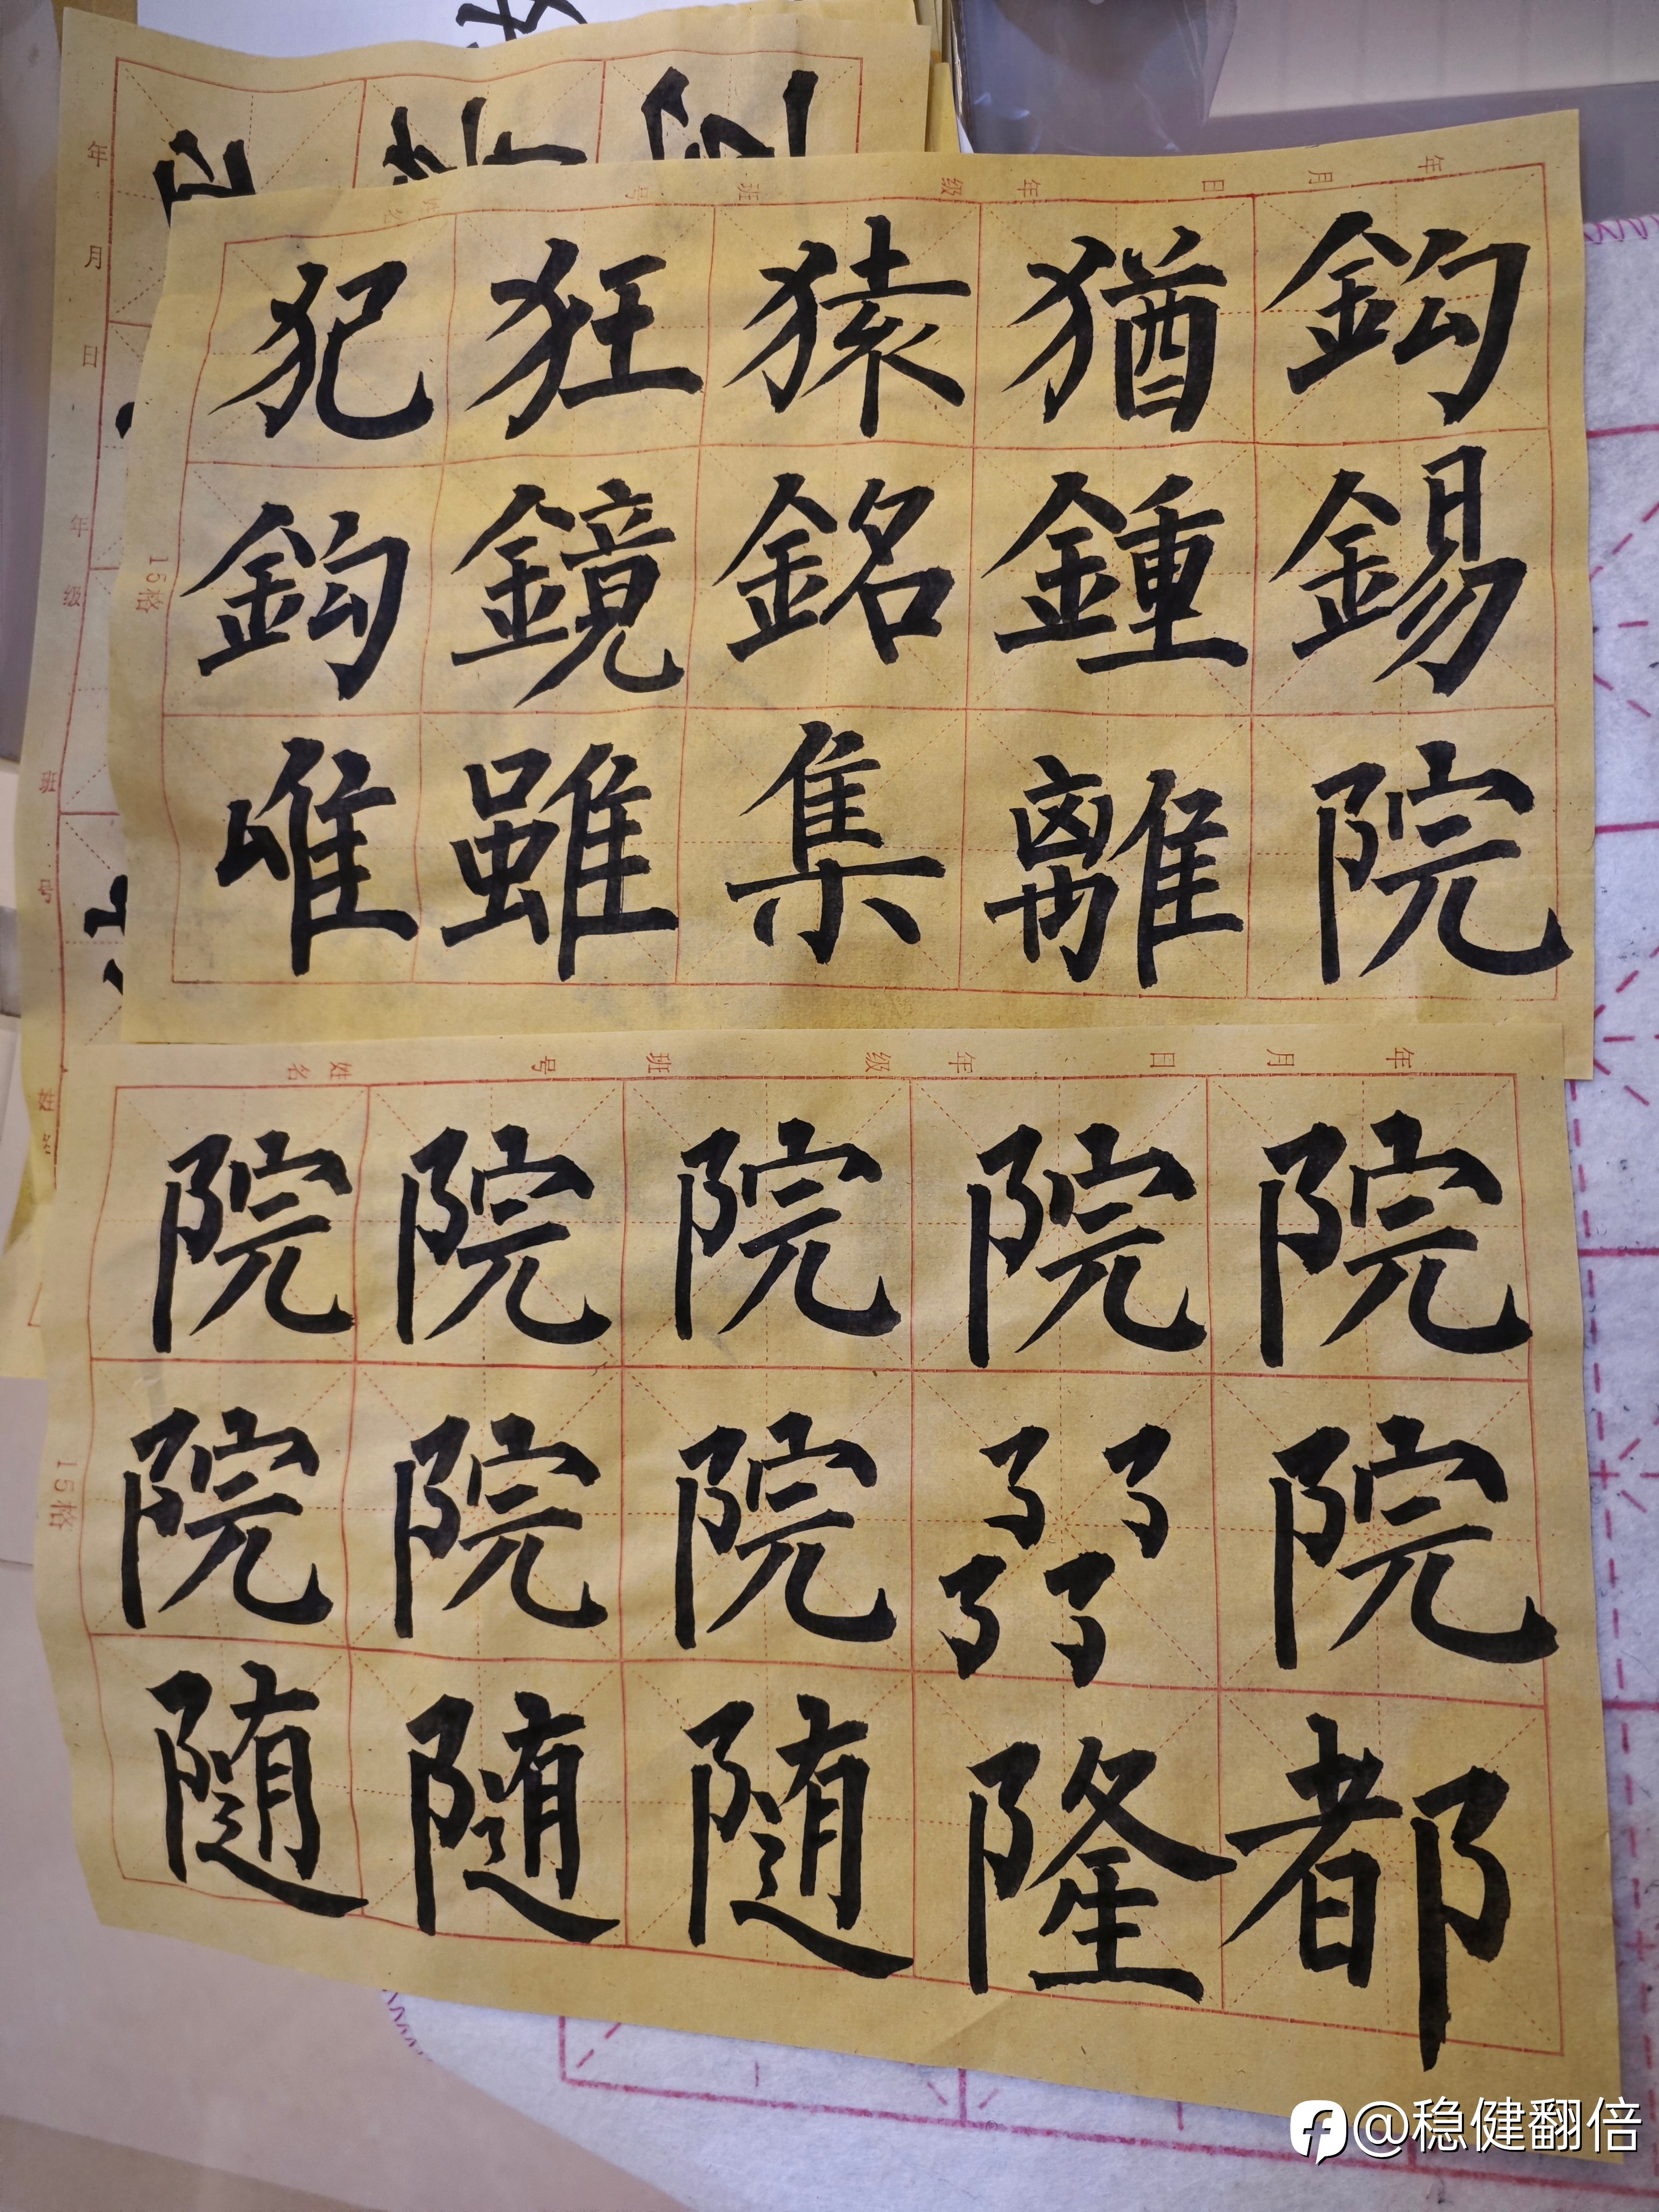 年 月 日 年 级 班 号
年 月 日 年 级 班 号 姓名
犯 狂 猿 猶 鈎
鈎 鏡 銘 鍾 錫
唯 雖 集 離 院
15格
年 月 日 年 级 班 号 姓名
院 院 院 院 院
院 院 院 院
随 随 随 隆 都
15格
@稳健翻倍